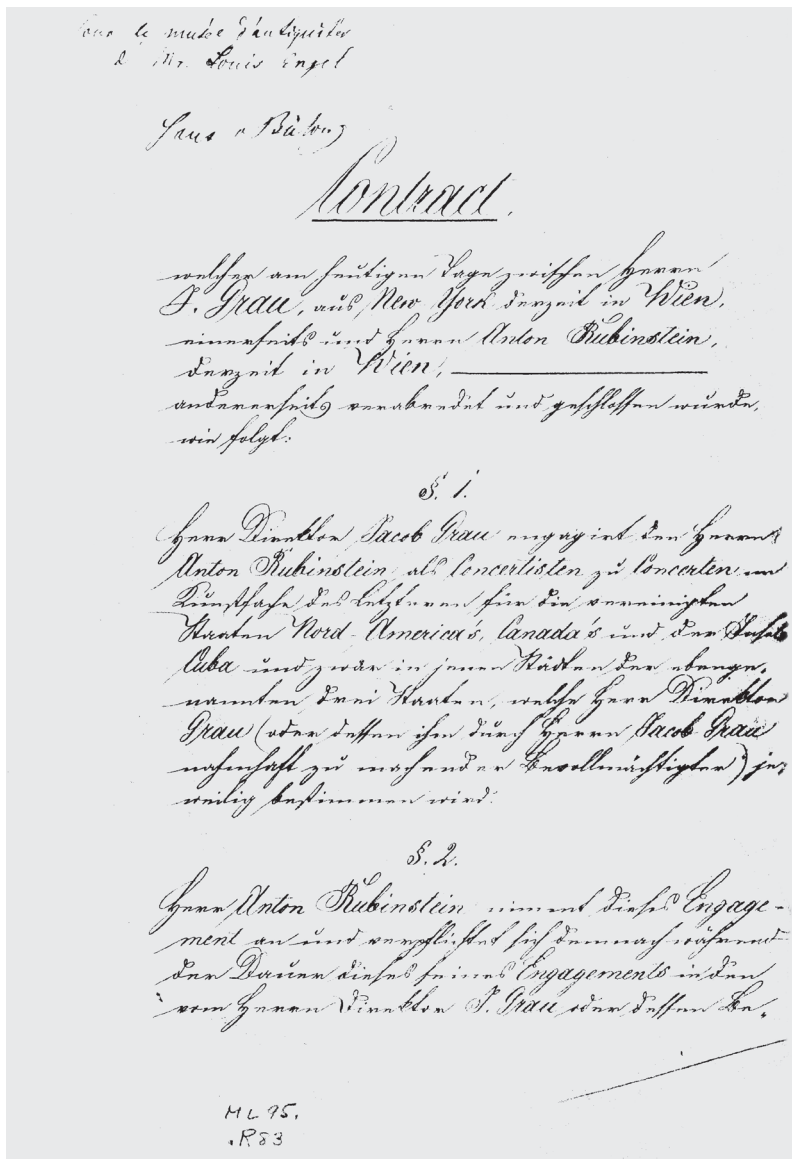 Pour le musée d'antiquités
d Mr. Louis Engel
Hans v Bülow
Contract.
welcher am heutigen Tage zwischen Herrn
J. Grau, aus New York derzeit in Wien,
einerseits und Herrn Anton Rubinstein,
derzeit in Wien,
andererseits verabredet und geschlossen wurde,
wie folgt:
§. 1.
Herr Direktor Jacob Grau engagirt den Herrn
Anton Rubinstein als Concertisten zu Concerten im
Kunstfache des Letzteren für die vereinigten
Staaten Nord-America's, Canada's und der Insel
Cuba und zwar in jenen Städten der ebenge-
nannten drei Staaten, welche Herr Direktor
Grau (oder dessen ihm durch Herrn Jacob Grau
nahmhaft zu machender Bevollmächtigter) je-
weilig bestimmen wird.
§. 2.
Herr Anton Rubinstein nimmt dieses Engage-
ment an und verpflichtet sich demnach während
der Dauer dieses seines Engagements in den
vom Herrn Direktor J. Grau oder dessen Be-
ML 95.
.R83